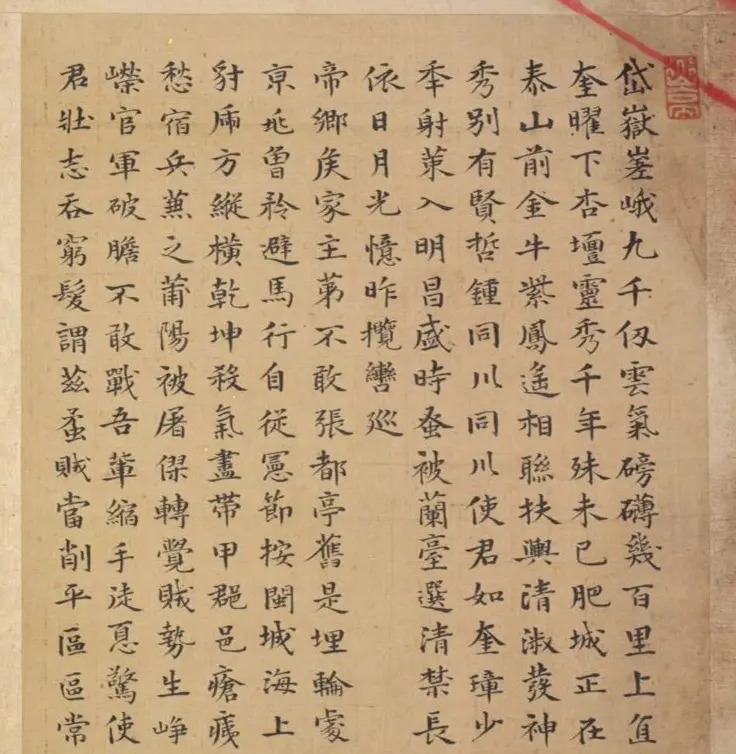 岱嶽嵳峨九千仭雲氣磅礴幾百里上直
奎曜下杏壇靈秀千年殊未已肥城正在
泰山前金牛紫鳳遙相聯扶輿清淑發神
秀別有賢哲鍾同川同川使君如奎璋少
年射策入明昌盛時蚤被蘭臺選清禁長
依日月光憶昨攬轡巡
帝鄉矦家主第不敢張都亭舊是埋輪處
京兆曾矜避馬行自從憲節按閩城海上
豺虎方縱橫乾坤殺氣盡帶甲郡邑瘡痍
愁宿兵兼之莆陽被屠僇轉覺賊勢生崢
嶸官軍破膽不敢戰吾輩縮手徒息驚使
君壯志吞窮髮謂茲蟊賊當削平區區常